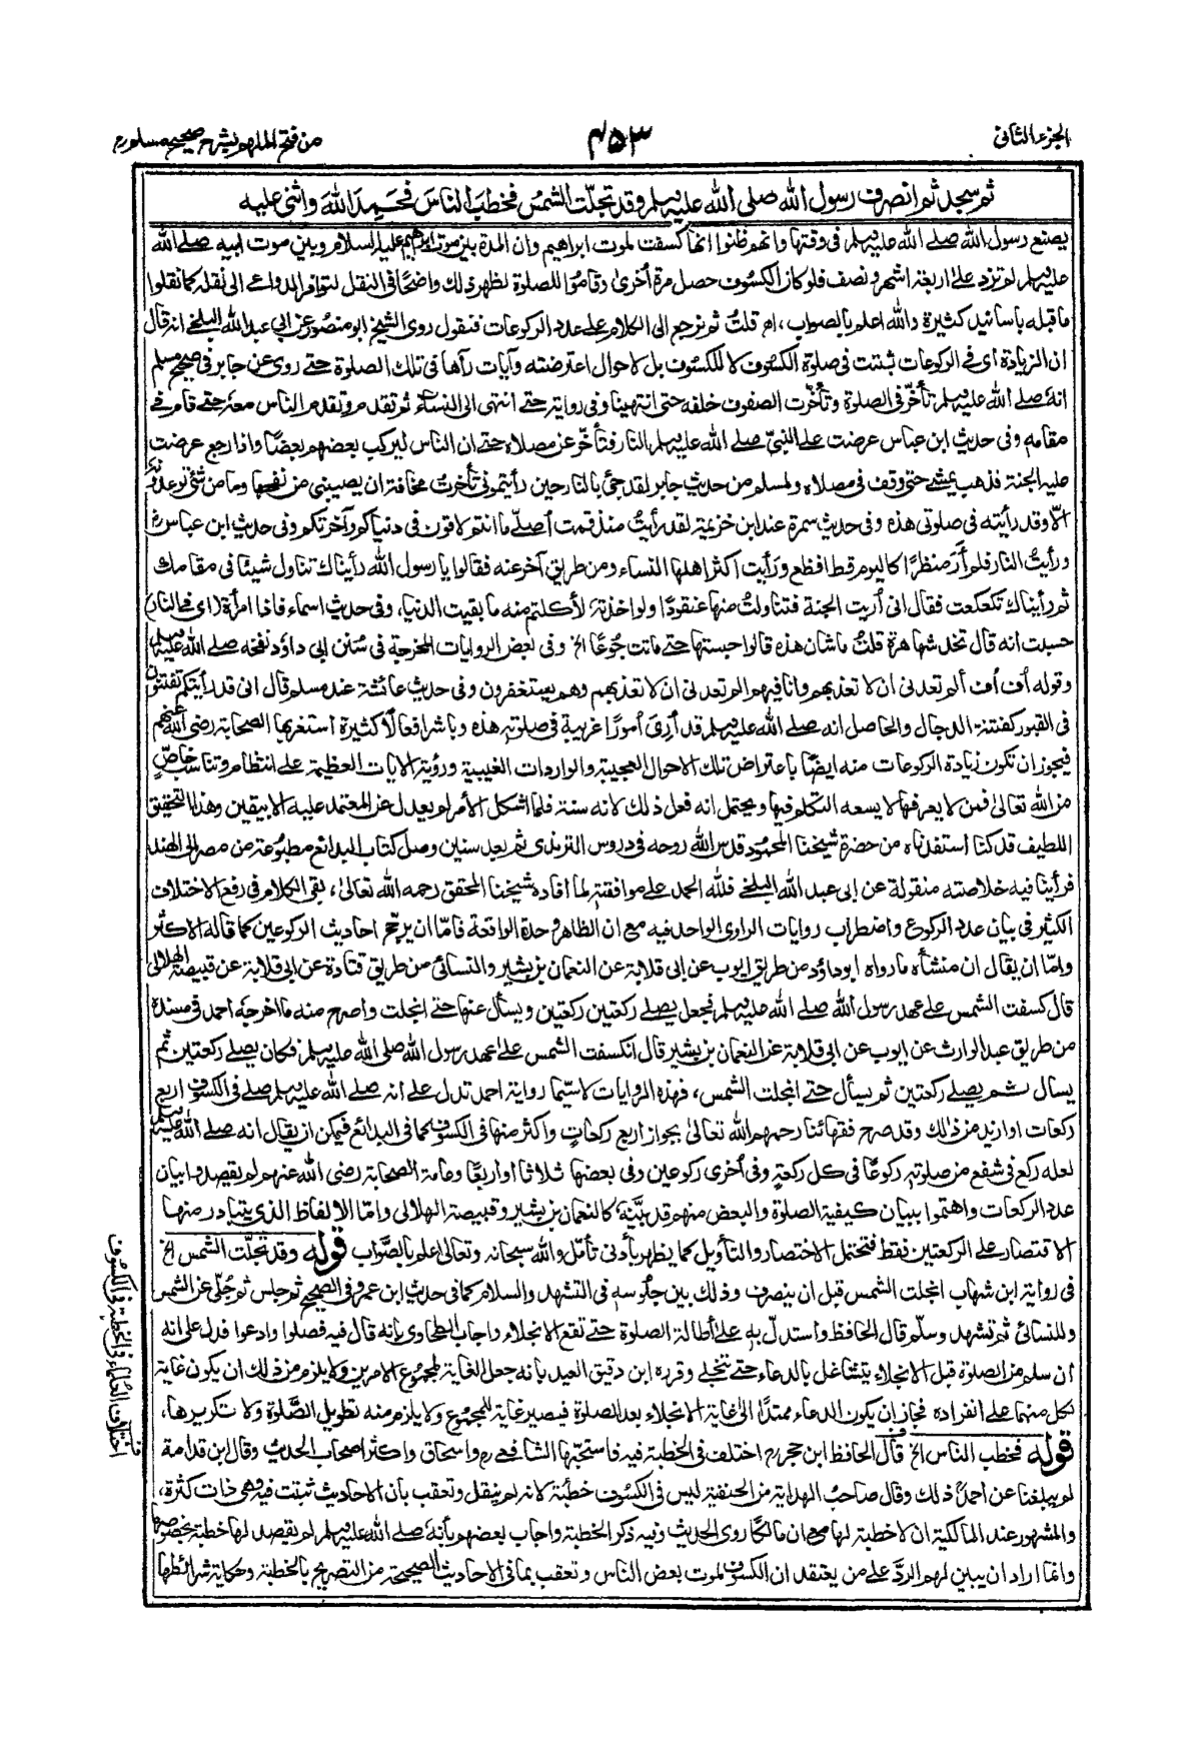 الجزء الثانى
٤٥٣
من فتح الملهم بشرح صحيح مسلم
ثم سجد ثم انصرف رسول الله صلى الله عليه وسلم وقد تجلّت الشمسُ فخطبَ الناسَ فحَمِدَ اللهَ واثنى عليه
يصنع رسول الله صلے الله عليه وسلم فى وقتها وانهم ظنوا انها كسفت لموت ابراهيم وان المدة بين موت ابراهيم عليه السلام وبين موت ابيه صلے الله
عليه وسلم لم تزد علىٰ اربعة اشهر ونصف فلو كان الكسوف حصل مرة أخرىٰ وقاموا للصلوة لظهر ذلك واضحًا فى النقل لتوافر الدواعے الى نقله كما نقلوا
ما قبله بأسانيد كثيرة والله اعلم بالصواب، اھ قلتُ ثم نرجع الى الكلام علے عدد الركوعات فنقول روى الشيخ ابو منصور عن ابى عبد الله البلخے انه قال
ان الزيادة اى فے الركوعات ثبتت فى صلوة الكسوف لا للكسوف بل لاحوال اعترضته وآيات رآها فى تلك الصلوة حتے روى عن جابر فى صحيح مسلم
انه صلے الله عليه وسلم تأخّر فى الصلوة وتأخّرت الصفوف خلفه حتى انتهينا وفى رواية حتے انتهى الى النساء ثم تقدم وتقدم الناس معه حتے قام فے
مقامه وفى حديث ابن عباس عرضت علے النبىّ صلے الله عليه وسلم النار فتأخّر عن مصلاه حتے ان الناس ليركب بعضهم بعضًا واذا رجع عرضت
عليه الجنة فذهب يمشے حتى وقف فى مصلاه ولمسلم من حديث جابر لقد جئ بالنار حين رأيتمونى تأخرتُ مخافة ان يصيبنى من نفحها وما من شئ توعدونه
الّا وقد رأيته فى صلوتى هذه وفى حديث سمرة عند ابن خزيمة لقد رأيتُ منذ قمت أصلّے ما انتم لاقون فى دنياكم وآخرتكم وفى حديث ابن عباس رض
ورأيتُ النار فلم أَرَ منظرًا كاليوم قط افظع ورَأيت اكثر اهلها النساء ومن طريق آخر عنه فقالوا يا رسول الله رأيناك تناول شيئًا فى مقامك
ثم رأيناك تكعكعت فقال انى أُريت الجنة فتناولتُ منها عنقودًا ولو اخذته لأكلتم منه ما بقيت الدنيا، وفى حديث اسماء فاذا امرأة (اى فے النار)
حسبت انه قال تخدشها هرة قلتُ ما شان هذه قالوا حبستها حتے ماتت جُوعًا الخ وفى بعض الروايات المخرجة فى سُنن ابى داؤد نفخه صلے الله عليه وسلم
وقوله أُف أُف ألم تعدنى ان لا تعذبهم وانا فيهم الم تعدنى ان لا تعذبهم وهم يستغفرون وفى حديث عائشة عند مسلم قال انى قد رأيتكم تفتنون
فى القبور كفتنة الدجال والحاصل انه صلے الله عليه وسلم قد أُرِىَ أمورًا غريبة فى صلوته هذه وباشر افعالًا كثيرة استغربها الصحابة رضى الله عنهم
فيجوز ان تكون زيادة الركوعات منه ايضًا باعتراض تلك الاحوال العجيبة والواردات الغيبية ورؤية الآيات العظيمة علے انتظام وتناسب خاصّ
من الله تعالىٰ فمن لا يعرفها لا يسعه التكلم فيها ويحتمل انه فعل ذلك لانه سنة فلما اشكل الأمر لم يعدل عن المعتمد عليه الا بيقين وهذا التحقيق
اللطيف قد كنا استفدناه من حضرة شيخنا المحمود قدس الله روحه فى دروس الترمذى ثم بعد سنين وصل كتاب البدائع مطبوعة من مصر الى الهند
فرأينا فيه خلاصته منقولة عن ابى عبد الله البلخے فلله الحمد علے موافقته لما افاده شيخنا المحقق رحمه الله تعالىٰ، بقى الكلام فى رفع الاختلاف
الكثير فى بيان عدد الركوع واضطراب روايات الراوى الواحد فيه مع ان الظاهر وحدة الواقعة فامّا ان يرجّح احاديث الركوعين كما قاله الاكثر
وامّا ان يقال ان منشأه ما رواه ابو داؤد من طريق ايوب عن ابى قلابة عن النعمان بن بشير والنسائى من طريق قتادة عن ابى قلابة عن قبيصة الهلالى
قال كسفت الشمس علے عهد رسول الله صلے الله عليه وسلم فجعل يصلے ركعتين ركعتين ويسأل عنها حتے انجلت واصرح منه ما اخرجه احمد فى مسنده
من طريق عبد الوارث عن ايوب عن ابى قلابة عن النعمان بن بشير قال انكسفت الشمس علے عهد رسول الله صلى الله عليه وسلم فكان يصلے ركعتين ثم
يسأل ثم يصلے ركعتين ثم يسأل حتے انجلت الشمس، فهذه الروايات لا سيّما رواية احمد تدل علے انه صلے الله عليه وسلم صلے فى الكسوف اربع
ركعات او ازيد من ذلك وقد صرح فقهائنا رحمهم الله تعالىٰ بجواز اربع ركعاتٍ واكثر منها فى الكسوف كما فى البدائع فيمكن ان يقال انه صلے الله عليه وسلم
لعله ركع فى شفع من صلوته ركوعًا فى كل ركعة وفى أخرى ركوعين وفى بعضها ثلاثا او اربعًا وعامة الصحابة رضى الله عنهم لم يقصدوا بيان
عدد الركعات واهتموا ببيان كيفية الصلوة والبعض منهم قد بيّنه كالنعمان بن بشير وقبيصة الهلالى وامّا الالفاظ الذى يتبادر منها
الاقتصار علے الركعتين فقط فتحتمل الاختصار والتأويل كما يظهر بأدنى تأمّل والله سبحانه وتعالىٰ اعلم بالصّواب قوله وقد تجلّت الشمس الخ
فى رواية ابن شهاب انجلت الشمس قبل ان ينصرف وذلك بين جلوسه فى التشهد والسلام كما فى حديث ابن عمرو فى الصحيح ثم جلس ثم جُلّى عن الشمس
وللنسائى ثم تشهد وسلّم قال الحافظ واستدلّ به علے أطالة الصلوة حتے تقع الانجلاء واجاب الطحاوى بأنه قال فيه فصلوا وادعوا فدل على انه
ان سلم من الصلوة قبل الانجلاء يتشاغل بالدعاء حتے تنجلے وقرره ابن دقيق العيد بأنه جعل الغاية لمجموع الامرين ولا يلزم من ذلك ان يكون غاية
لكل منهما علے انفراده فجاز ان يكون الدعاء ممتدًا الىٰ غاية الانجلاء بعد الصلوة فيصير غاية للمجموع ولا يلزم منه تطويل الصَّلوة ولا تكريرها،
قوله فخطب الناس الخ قال الحافظ ابن حجر رح اختلف فى الخطبة فيه فاستحبّها الشافعے رح واسحاق واكثر اصحاب الحديث وقال ابن قدامة
لم يبلغنا عن احمد ذلك وقال صاحب الهداية من الحنفية ليس فى الكسوف خطبة لانه لم ينقل وتعقب بأن الاحاديث ثبتت فيه وهى ذات كثرة،
والمشهور عند المالكية ان لا خطبة لها مع ان مالكًا روى الحديث وفيه ذكر الخطبة واجاب بعضهم بأنه صلے الله عليه وسلم لم يقصد لها خطبة بخصوصها
وانما اراد ان يبين لهم الردّ علے من يعتقد ان الكسوف لموت بعض الناس وتعقب بما فى الاحاديث الصحيحة من التصريح بالخطبة وحكاية شرائطها
اختلاف العلماء فى الخطبة فى الكسوف